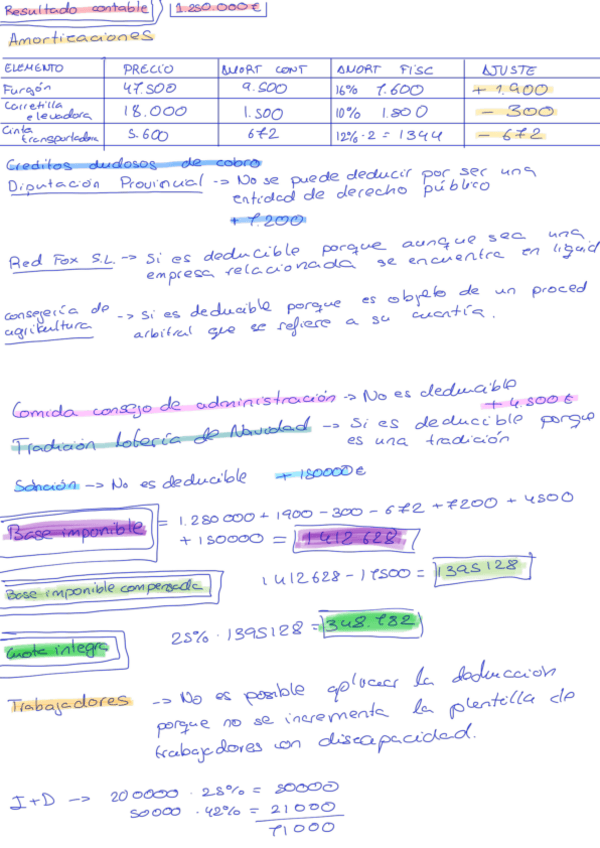 Resultado contable 1.250.000€
Amortizaciones
ELEMENTO PRECIO AMORT CONT AMORT FISC AJUSTE
Furgón 47.500 9.500 16% 7.600 + 1.900
Carretilla elevadora 18.000 1.500 10% 1.800 - 300
Cinta transportadora 5.600 672 12%·2 = 1344 - 672
Creditos dudosos de cobro
Diputación Provincial -> No se puede deducir por ser una
entidad de derecho público
+ 7.200
Red Fox S.L. -> Si es deducible porque aunque sea una
empresa relacionada se encuentra en liquid
consejería de agricultura -> Si es deducible porque es objeto de un proced
arbitral que se refiere a su cuantía.
Comida consejo de administración -> No es deducible
+ 4.500€
Tradición lotería de Navidad -> Si es deducible porque
es una tradición
Sanción -> No es deducible + 150000€
Base imponible = 1.250.000 + 1900 - 300 - 672 + 7200 + 4500
+ 150000 = 1412628
Base imponible compensada 1412628 - 17500 = 1395128
Cuota integra 25% · 1395128 = 348.782
Trabajadores -> No es posible aplicar la deducción
porque no se incrementa la plantilla de
trabajadores con discapacidad.
I+D -> 200000 · 25% = 50000
50000 · 42% = 21000
71000